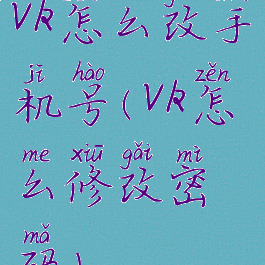 VK怎么改手
jī hào zěn
机号(VK怎
me xiū gǎi mì
么修改密
mǎ
码)